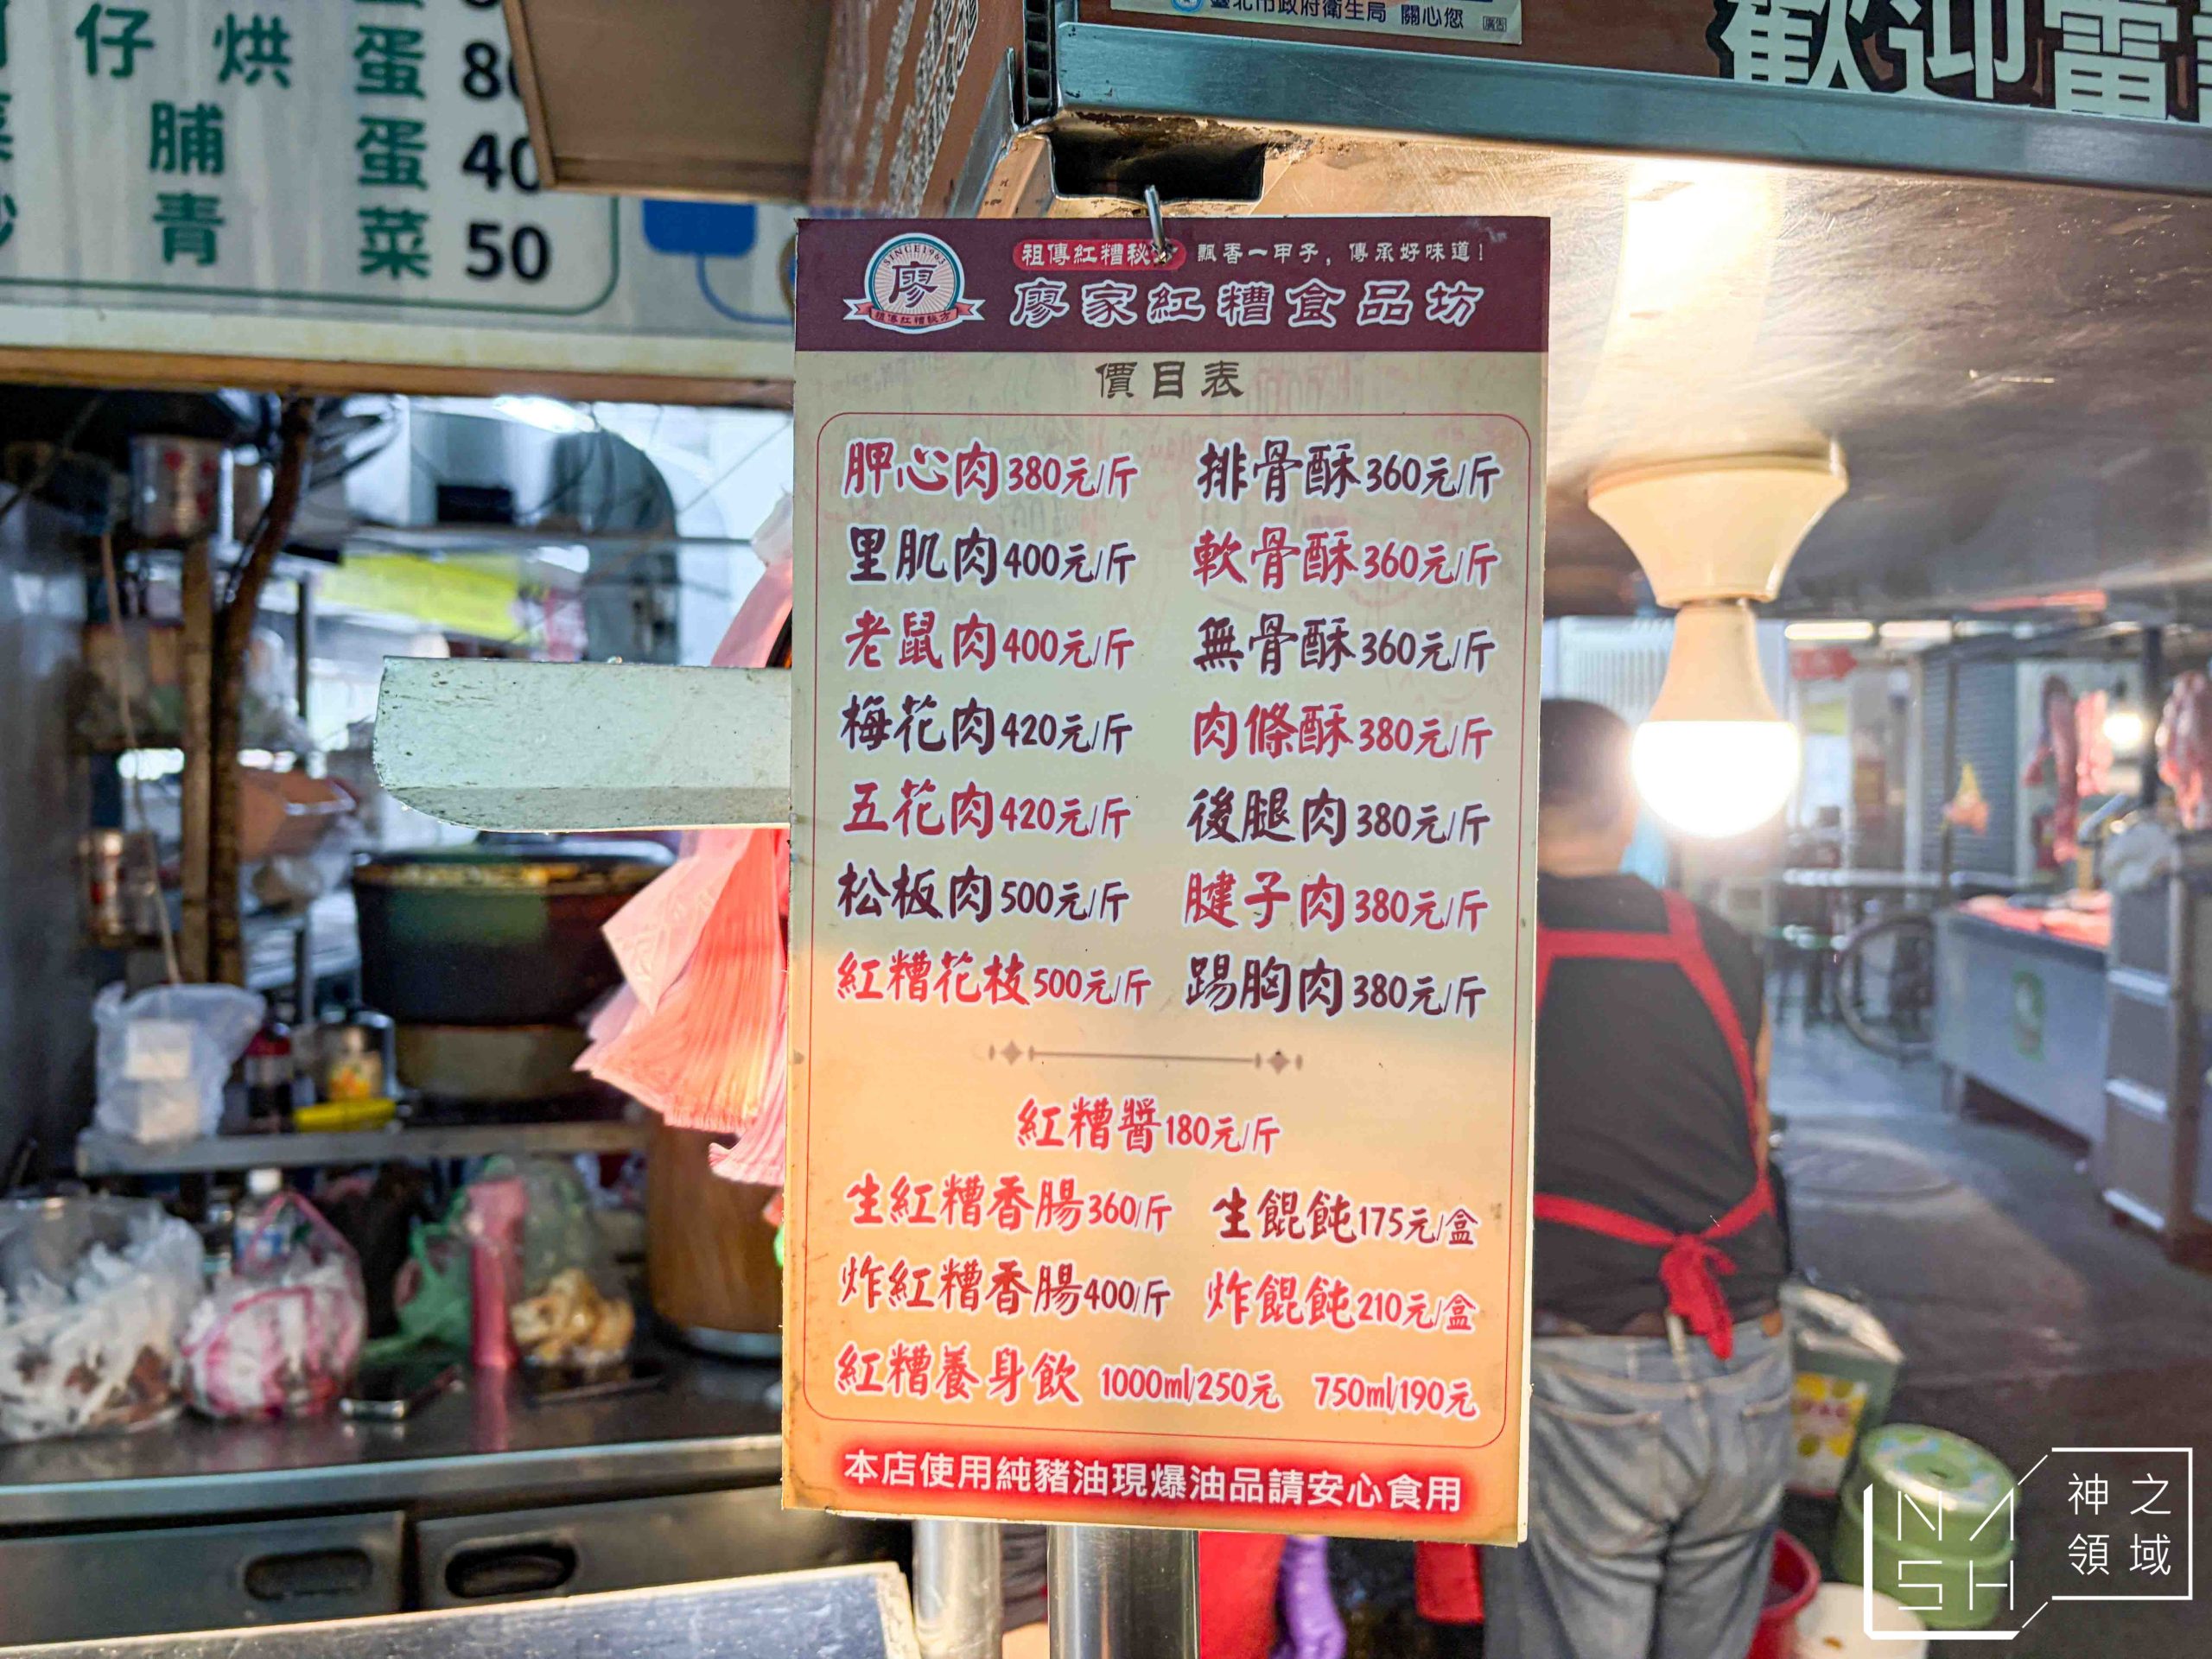 仔 烘 蛋
脯 蛋 40
青 菜 50
臺北市政府衛生局 關心您
廣告
歡迎
SINCE1963
廖
祖傳紅糟秘方
祖傳紅糟秘 飄香一甲子，傳承好味道！
廖家紅糟食品坊
價目表
胛心肉380元/斤 排骨酥360元/斤
里肌肉400元/斤 軟骨酥360元/斤
老鼠肉400元/斤 無骨酥360元/斤
梅花肉420元/斤 肉條酥380元/斤
五花肉420元/斤 後腿肉380元/斤
松板肉500元/斤 腱子肉380元/斤
紅糟花枝500元/斤 踢胸肉380元/斤
紅糟醬180元/斤
生紅糟香腸360/斤 生餛飩175元/盒
炸紅糟香腸400/斤 炸餛飩210元/盒
紅糟養身飲 1000ml/250元 750ml/190元
本店使用純豬油現爆油品請安心食用
NASH
神之領域